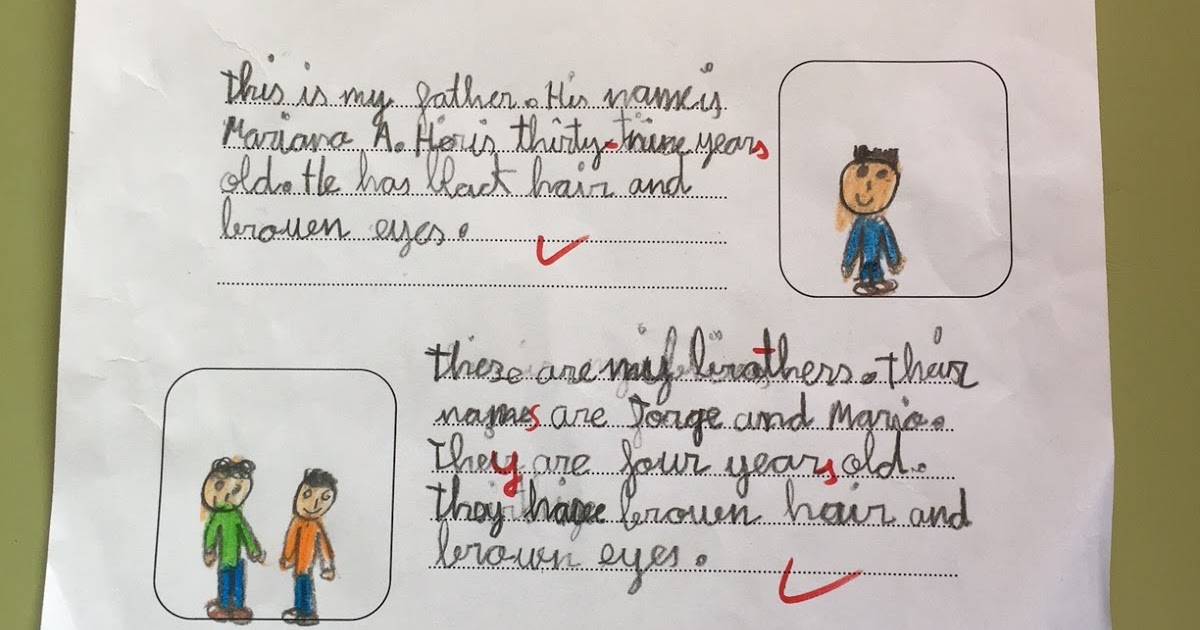 This is my father. His name is
Mariano A. He is thirty-nine years
old. He has black hair and
brouen eyes.
These are my brothers. Their
names are Jorge and Mario.
They are four years old.
They have brouen hair and
brown eyes.